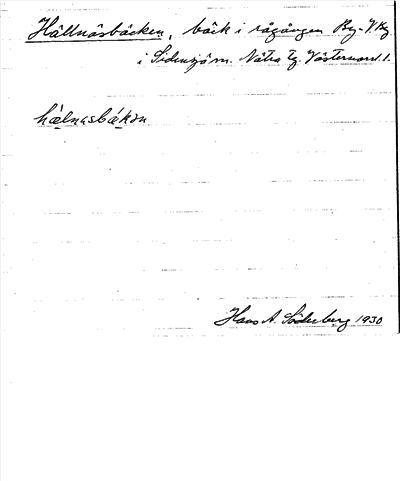 Hällnäsbäcken, bäck i rågången By-V.By
i Sidensjö sn. Nätra tg. Västernorrl. l.
hä̀lnasbä́kɘn
Hans A. Söderberg 1930